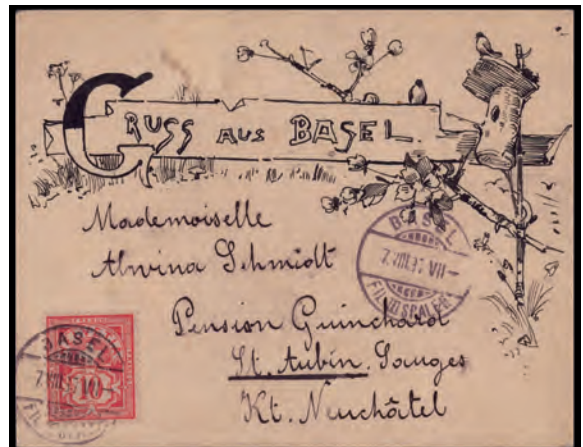 GRUSS AUS BASEL.
Mademoiselle
Alwina Schmidt
BASEL
7.VIII.9 VII-
FIL. SPALEN
Pension Guinchard
St. Aubin. Sauges
Kt. Neuchâtel
BASEL
10